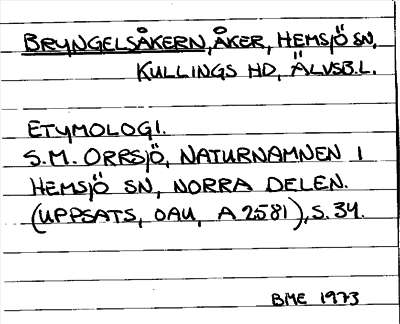 BRYNGELSÅKERN, ÅKER, HEMSJÖ SN,
KULLINGS HD, ÄLVSB.L.
ETYMOLOGI.
S.M. ORRSJÖ, NATURNAMNEN I
HEMSJÖ SN, NORRA DELEN.
(UPPSATS, OAU, A 2581), S. 34.
BME 1973